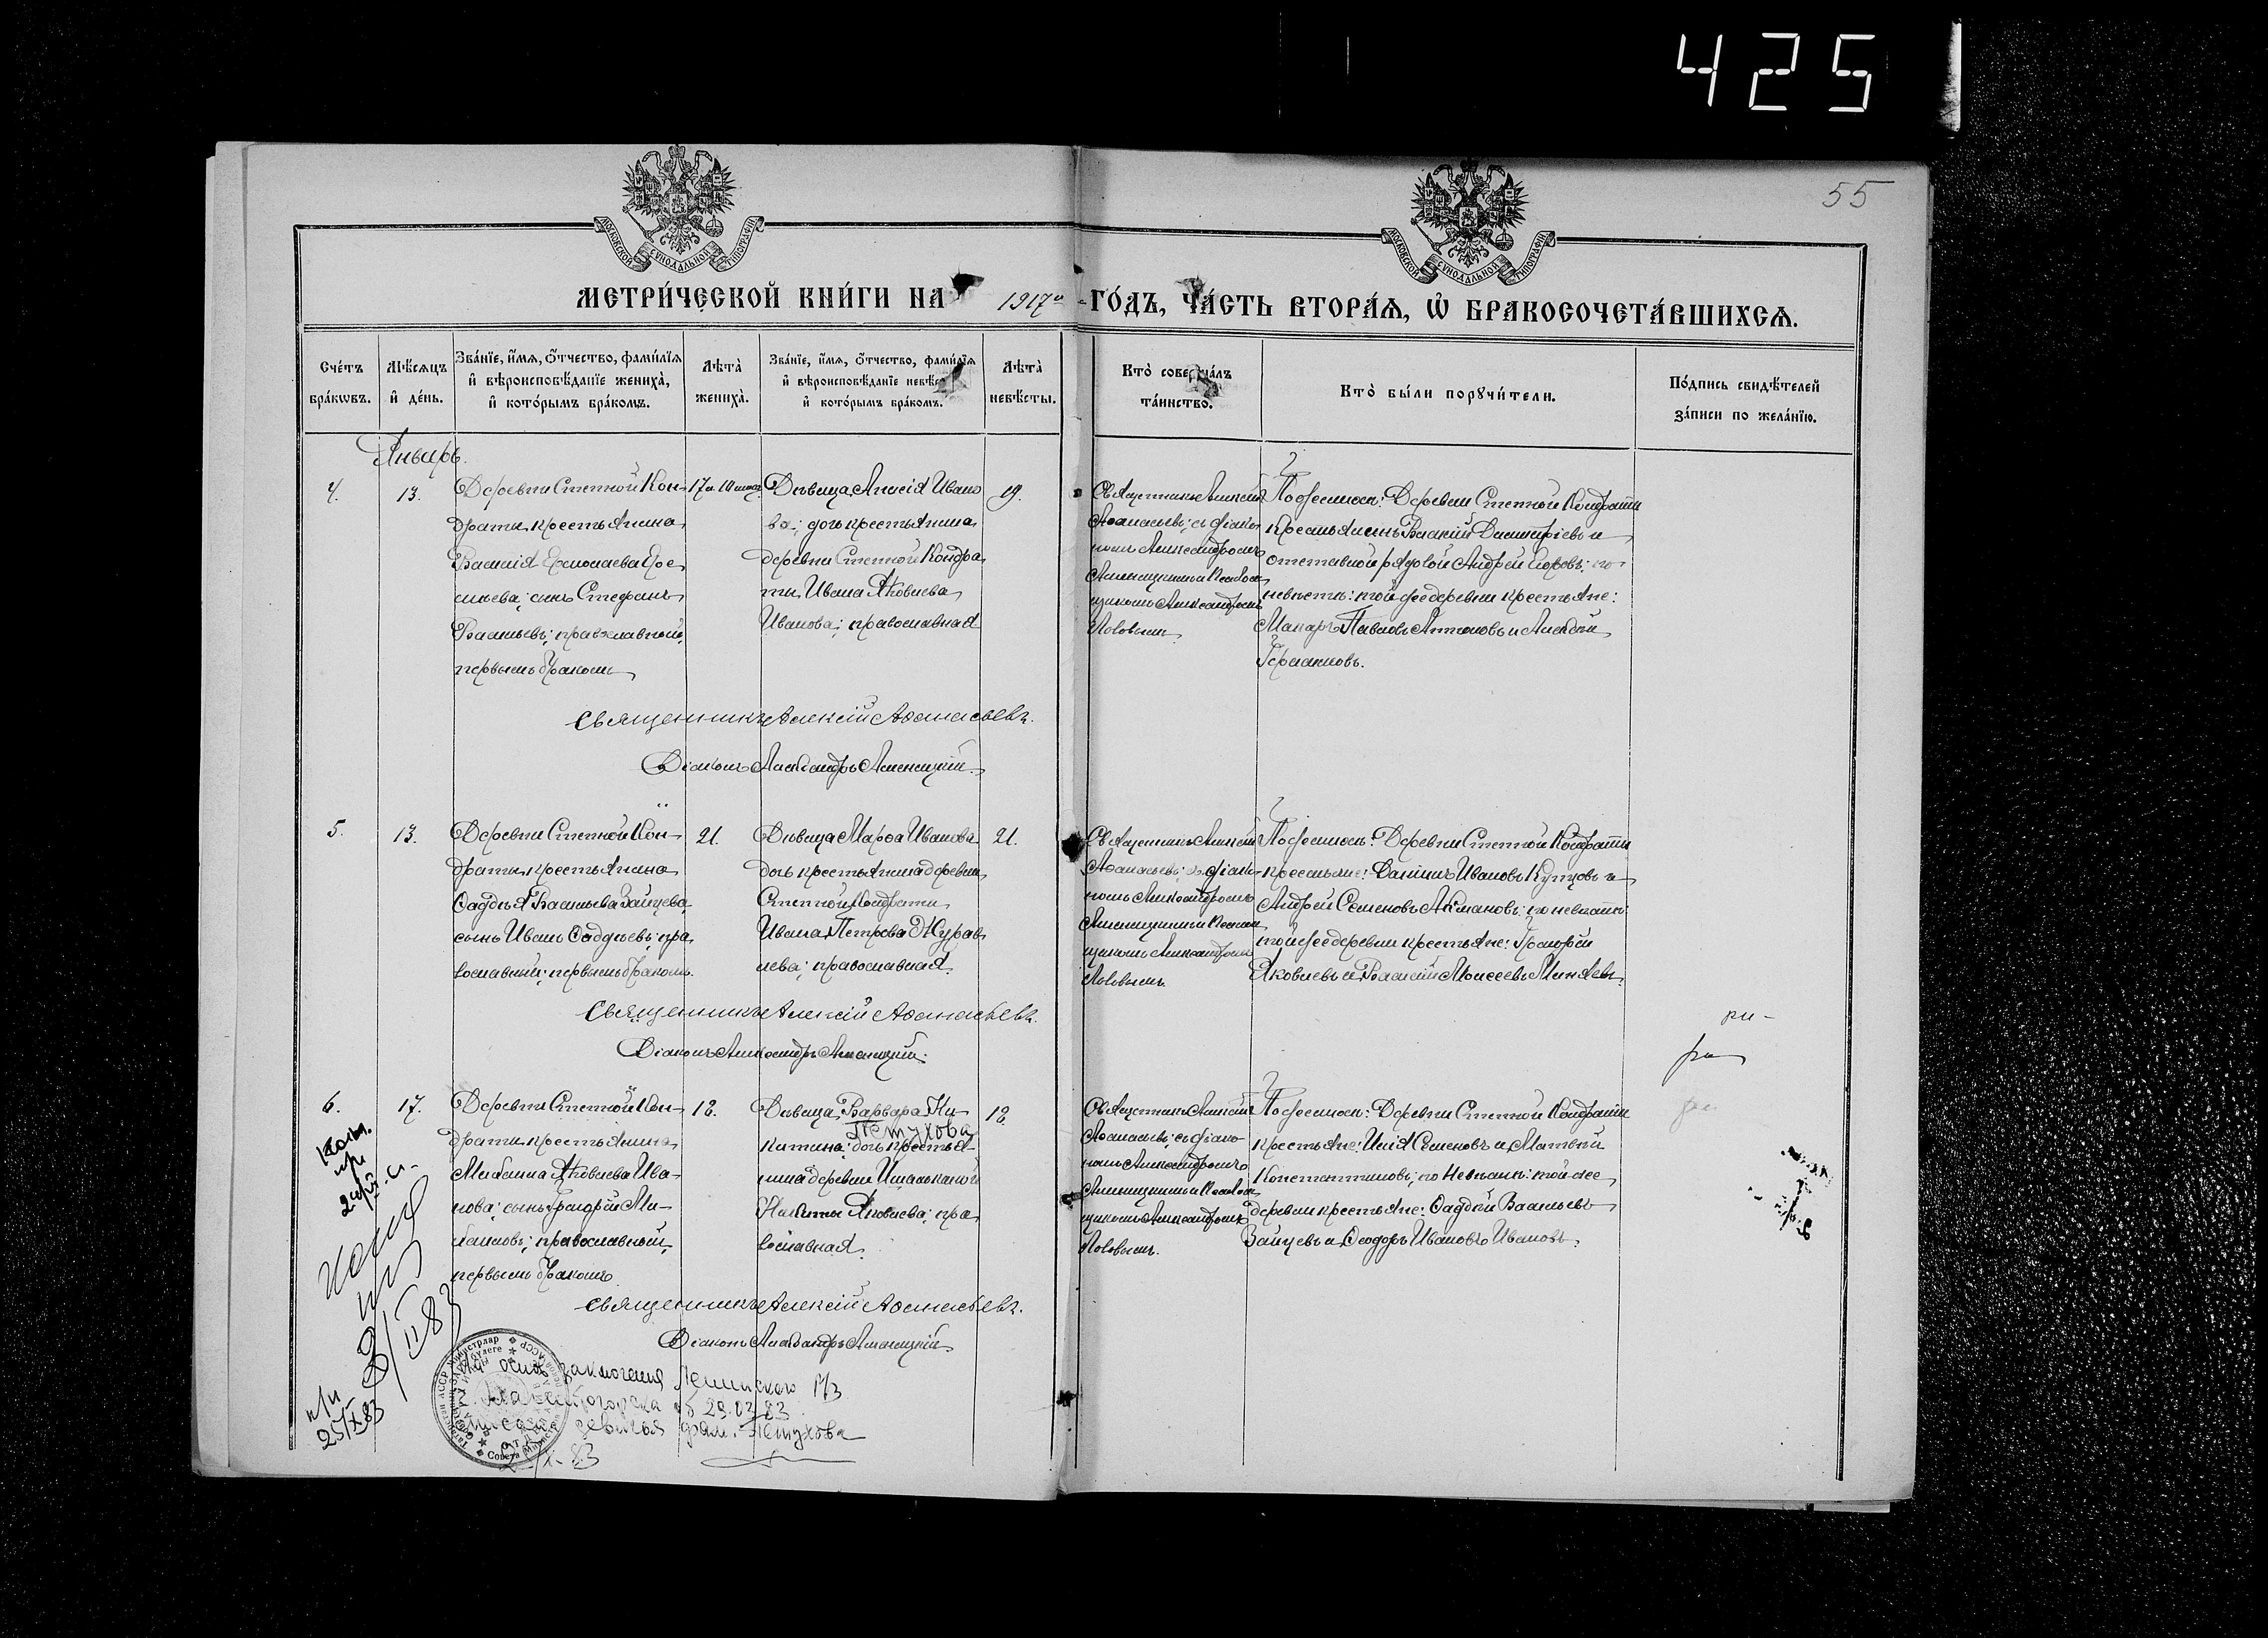 425
55
МОСКОВСКОЙ СУНОДАЛЬНОЙ ТИПОГРАФІИ
МОСКОВСКОЙ СУНОДАЛЬНОЙ ТИПОГРАФІИ
МЕТРИ́ЧЕСКОЙ КНИ́ГИ НА 1917й ГО́ДЪ, ЧА́СТЬ ВТОРА́Я, Ѽ БРАКОСОЧЕТА́ВШИХСЯ.
Сче́тъ бра́кωвъ.
Мѣ́сяцъ и҆ де́нь.
Зва́нїе, и҆́мя, ѻ҆́тчество, фами́лїя и҆ вѣроисповѣ́данїе жениха̀, и҆ кото́рымъ бра́комъ.
Лѣта̀ жениха̀.
Зва́нїе, и҆́мя, ѻ҆́тчество, фами́лїя и҆ вѣроисповѣ́данїе невѣ́сты и҆ кото́рымъ бра́комъ.
Лѣта̀ невѣ́сты.
Кто̀ соверша́лъ та́инство.
Кто̀ бы́ли порꙋчи́тели.
По́дпись свидѣ́телей за́писи по жела́нїю.
Январь.
4.
13.
Деревни Степной Кон-
драты крестьянина
Василія
сынъ Стефанъ
Васильевъ; православный,
первымъ бракомъ
17 л. 10 мѣс.
Дѣвица Анисія Ивано
ва; дочь крестьянина
деревни Степной Кондра
ты Ивана Яковлева
Иванова; православная
19.
Священникъ Алексій
Аѳанасьевъ; съ діако
номъ Александромъ
и псалом
щикомъ Александромъ
По женихѣ: Деревни Степной Кондраты
крестьянинъ Василій Димитріевъ и
отставной рядовой Андрей; по
невѣстѣ: той же деревни крестьяне:
Макаръ Павловъ Антоновъ и Алексѣй
Германовъ.
Священникъ Алексій Аѳанасьевъ.
Діаконъ Александръ
5.
13.
Деревни Степной Кон-
драты крестьянина
Ѳаддѣя Васильева Зайцева,
сынъ Иванъ Ѳаддѣевъ; пра
вославный; первымъ бракомъ.
21.
Дѣвица Марѳа Иванова
дочь крестьянина деревни
Степной Кондраты
Ивана Петрова Журав
лева; православная.
21.
Священникъ Алексій
Аѳанасьевъ; съ діако-
номъ Александромъ
и псалом
щикомъ Александромъ
По женихѣ: Деревни Степной Кондраты
крестьяне: Даніилъ Ивановъ Купцовъ и
Андрей Семеновъ; по невѣстѣ
той же деревни крестьяне: Григорій
Яковлевъ и Василій Моисеевъ Миняевъ.
Священникъ Алексій Аѳанасьевъ.
Діаконъ Александръ
6.
17.
Деревни Степной Кон-
драты крестьянина
Михаила Яковлева Ива-
нова; сынъ Григорій Ми-
хаиловъ; православный,
первымъ бракомъ
18.
Дѣвица Варвара Ни-
Петухова
китина; дочь крестья-
нина деревни
Никиты Яковлева; пра
вославная.
18.
Священникъ Алексій
Аѳанасьевъ; съ діако-
номъ Александромъ
и псалом
щикомъ Александромъ
По женихѣ: Деревни Степной Кондраты
крестьяне: Илія Семеновъ и Матвѣй
Константиновъ; по невѣстѣ: той же
деревни крестьяне: Ѳаддѣй Васильевъ
Зайцевъ и Ѳеодоръ Ивановъ Ивановъ.
Священникъ Алексій Аѳанасьевъ.
Діаконъ Александръ
3/II 83
п/и
25/X 83
На осн. заключения Ленинского
от 29.03.83
девичья фам. Петухова